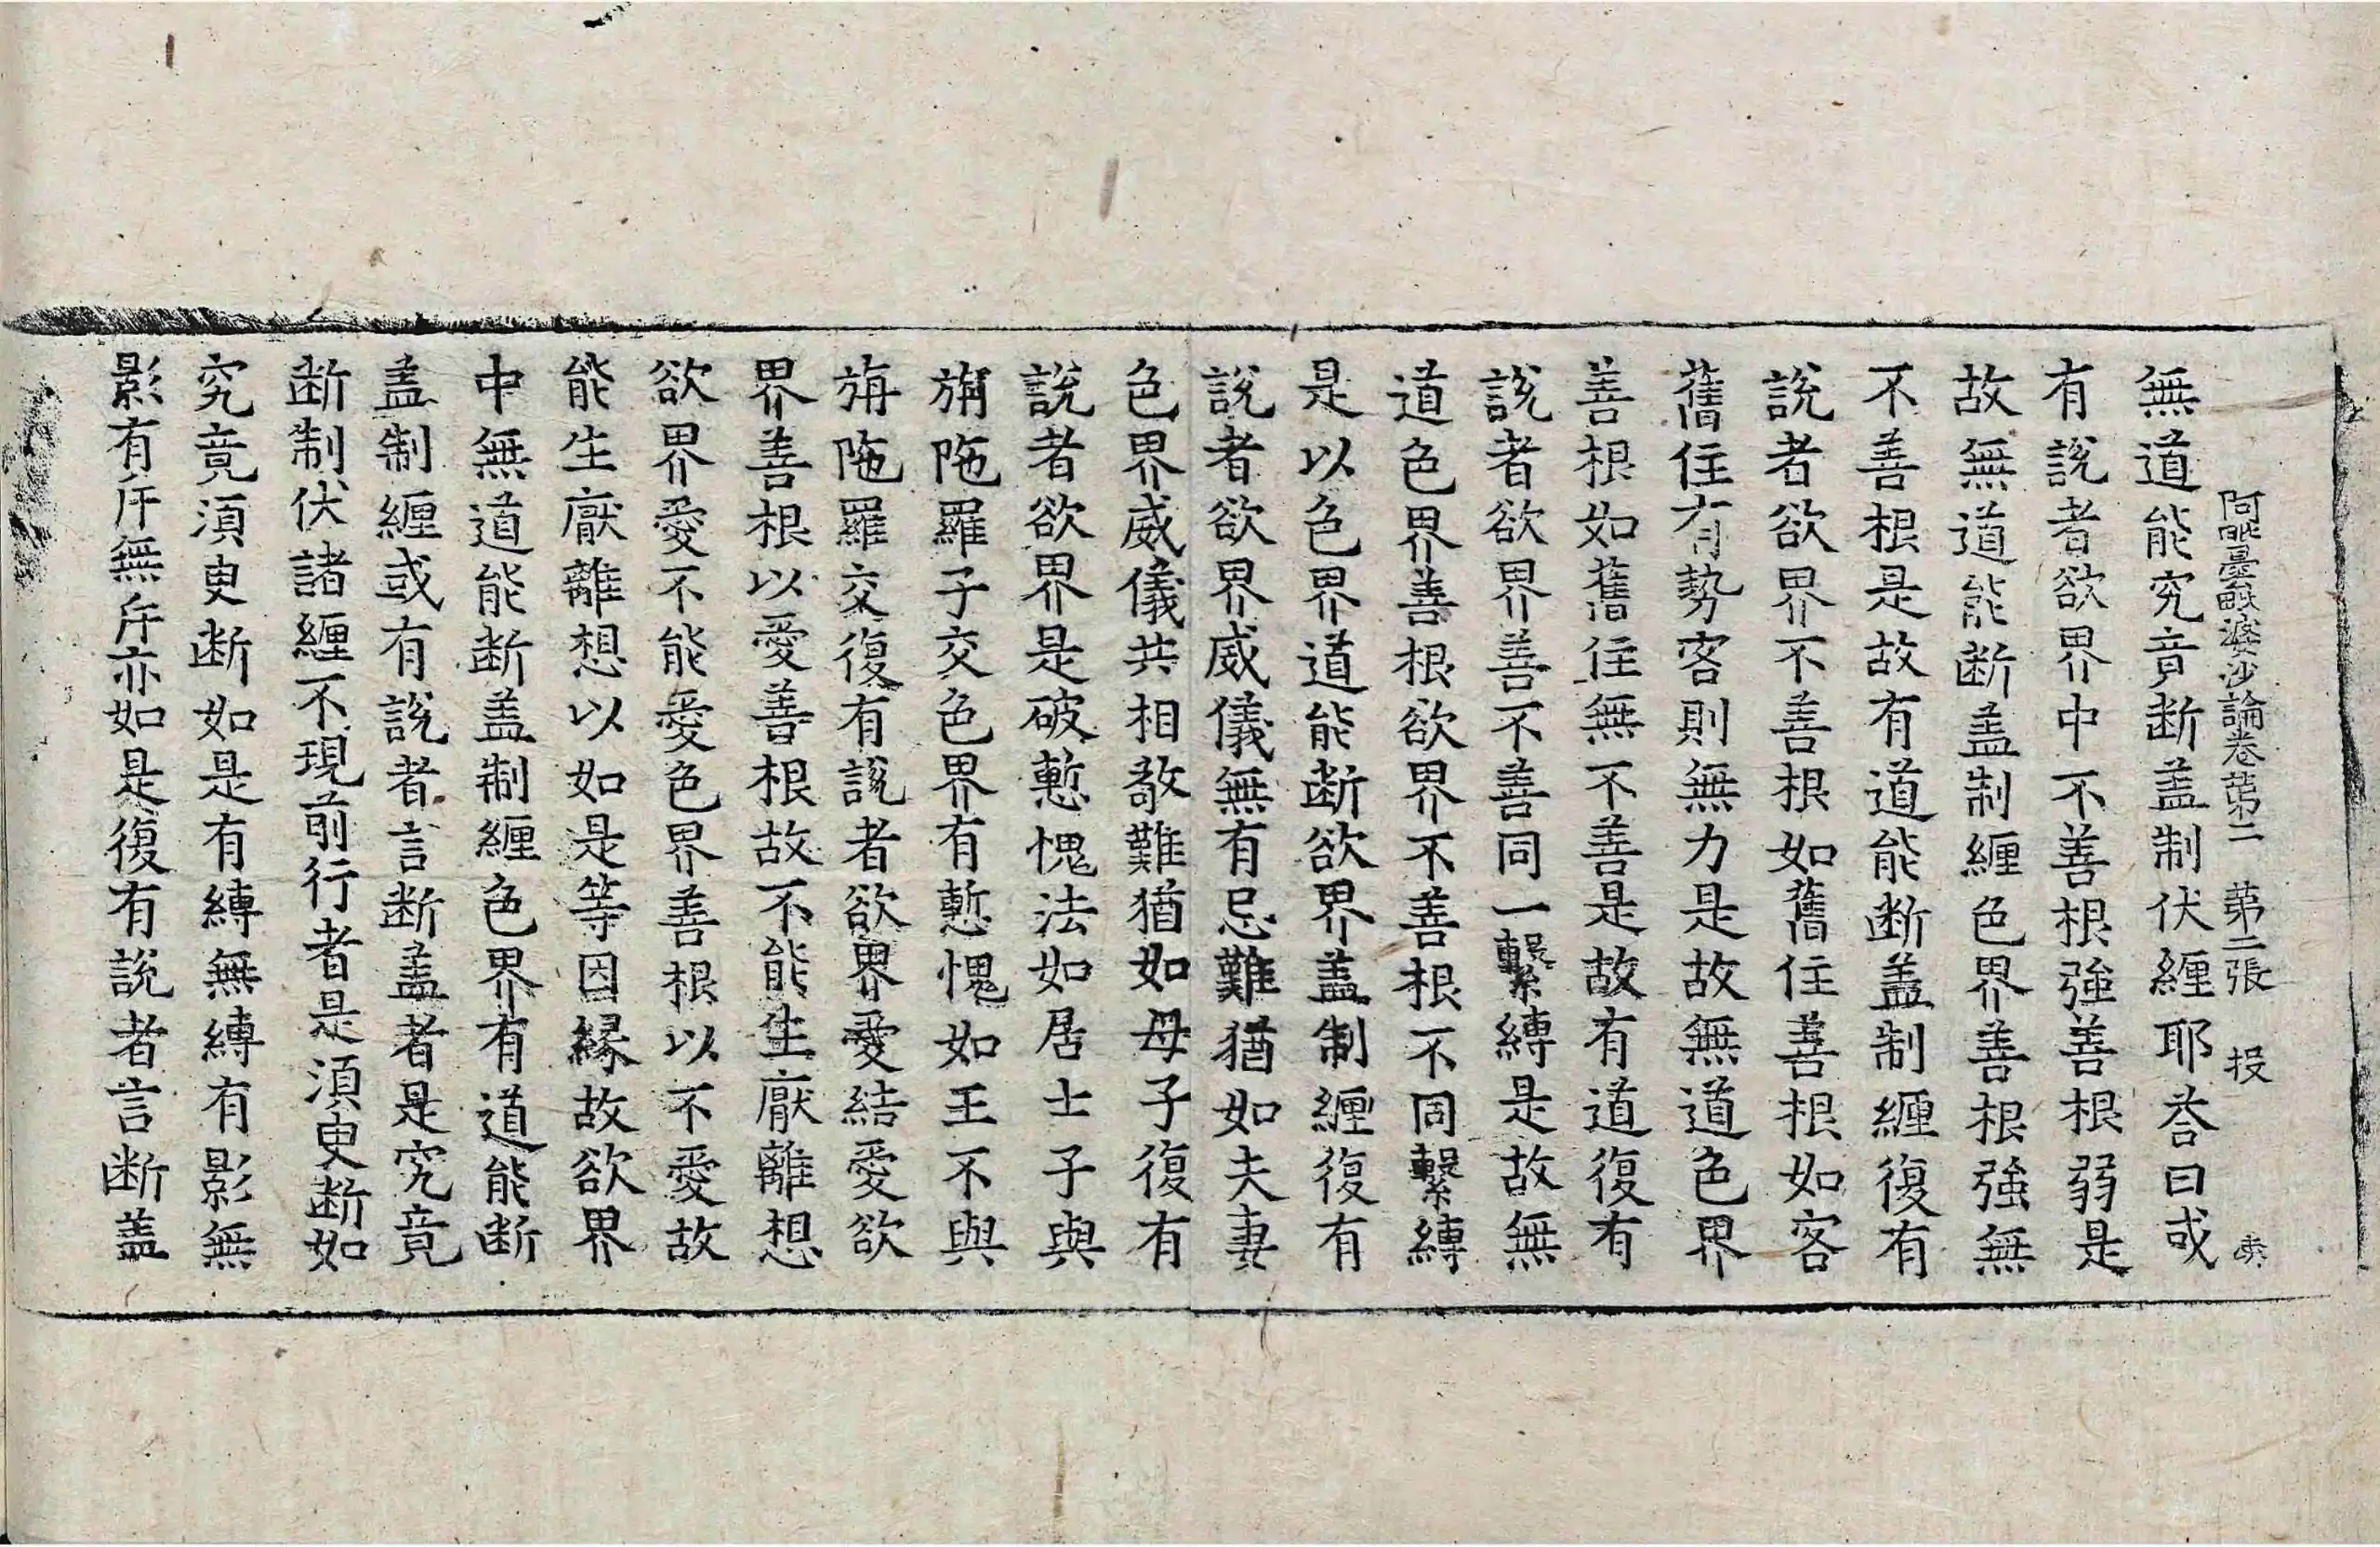 阿毗曇毗婆沙論卷第二　第二張　投　夷
無道能究竟断盖制伏纏耶荅曰或
有說者欲界中不善根強善根弱是
故無道能断盖制纏色界善根強無
不善根是故有道能断盖制纏復有
說者欲界不善根如舊住善根如客
舊住有勢客則無力是故無道色界
善根如舊住無不善是故有道復有
說者欲界善不善同一繫縛是故無
道色界善根欲界不善根不同繫縛
是以色界道能断欲界盖制纏復有
說者欲界威儀無有忌難猶如夫妻
色界威儀共相敬難猶如母子復有
說者欲界是破慙愧法如居士子與
旃陁羅子交色界有慙愧如王不與
旃陁羅交復有說者欲界愛結愛欲
界善根以愛善根故不能生厭離想
欲界愛不能愛色界善根以不愛故
能生厭離想以如是等因縁故欲界
中無道能断盖制纏色界有道能断
盖制纏或有說者言断盖者是究竟
断制伏諸纏不現前行者是湏臾断如
究竟湏臾断如是有縛無縛有影無
影有斥無斥亦如是復有說者言断盖